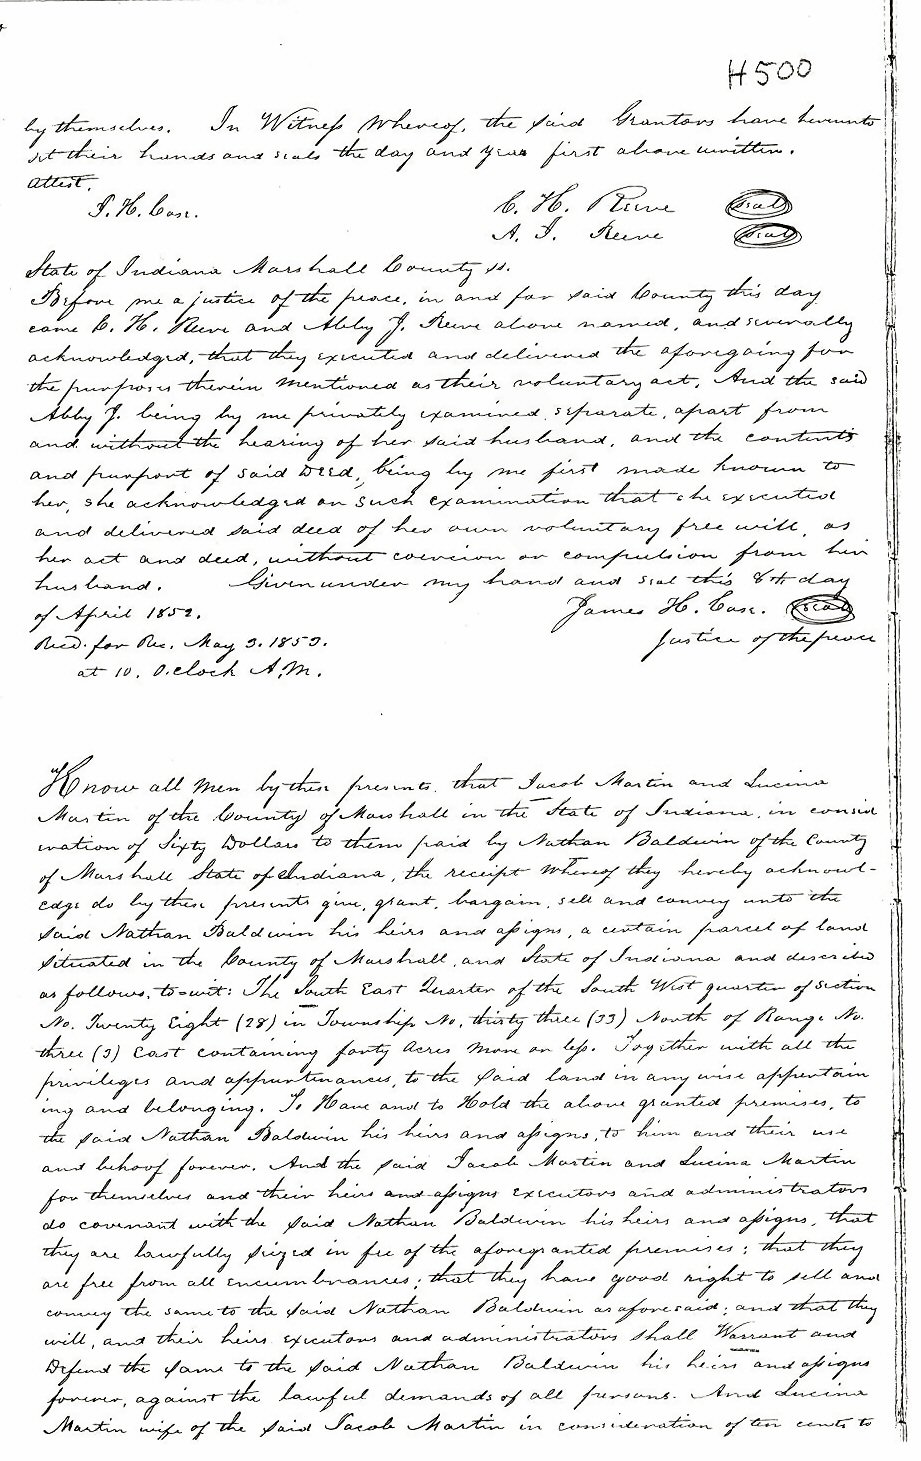 H500
by themselves. In Witness Whereof, the said Grantors have hereunto
set their hands and seals the day and year first above written.
Attest.
J. H. Case.
C. H. Reeve (seal)
A. J. Reeve (seal)
State of Indiana Marshall County ss.
Before me a justice of the peace, in and for said County this day
came C. H. Reeve and Abby J. Reeve above named, and severally
acknowledged, that they executed and delivered the aforegoing for
the purposes therein mentioned as their voluntary act. And the said
Abby J. being by me privately examined, separate, apart from
and without the hearing of her said husband, and the contents
and purport of said Deed, being by me first made known to
her, she acknowledged on such examination that she executed
and delivered said deed of her own voluntary free will, as
her act and deed, without coercion or compulsion from her
husband. Given under my hand and seal this 8th day
of April 1852. James H. Case. (seal)
Recd. for Rec. May 3. 1853. Justice of the peace
at 10. O.clock A.M.
Know all men by these presents, that Jacob Martin and Lucina
Martin of the County of Marshall in the State of Indiana, in consid
eration of Sixty Dollars to them paid by Nathan Baldwin of the County
of Marshall State of Indiana, the receipt Whereof they hereby acknowl-
edge do by these presents give, grant, bargain, sell and convey unto the
said Nathan Baldwin his heirs and assigns, a certain parcel of land
situated in the County of Marshall, and State of Indiana and described
as follows, to-wit: The South East Quarter of the South West quarter of section
No. Twenty Eight (28) in Township No. thirty three (33) North of Range No.
three (3) East containing forty acres more or less. Together with all the
privileges and appurtenances, to the said land in any wise appertain
ing and belonging. To Have and to Hold the above granted premises, to
the said Nathan Baldwin his heirs and assigns, to him and their use
and behoof forever. And the said Jacob Martin and Lucina Martin
for themselves and their heirs and assigns executors and administrators
do covenant with the said Nathan Baldwin his heirs and assigns, that
they are lawfully seized in fee of the aforegranted premises; that they
are free from all encumbrances; that they have good right to sell and
convey the same to the said Nathan Baldwin as aforesaid; and that they
will, and their heirs executors and administrators shall Warrant and
Defend the same to the said Nathan Baldwin his heirs and assigns
forever, against the lawful demands of all persons. And Lucina
Martin wife of the said Jacob Martin in consideration of ten cents to